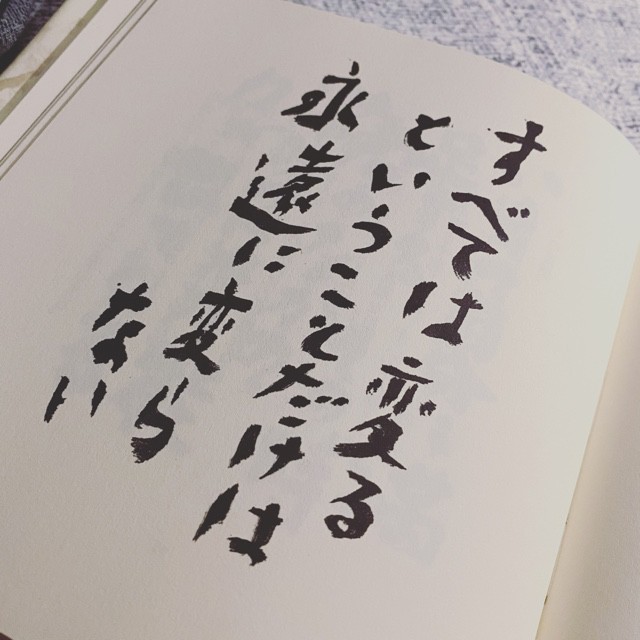 すべては変る
ということだけは
永遠に変ら
ない